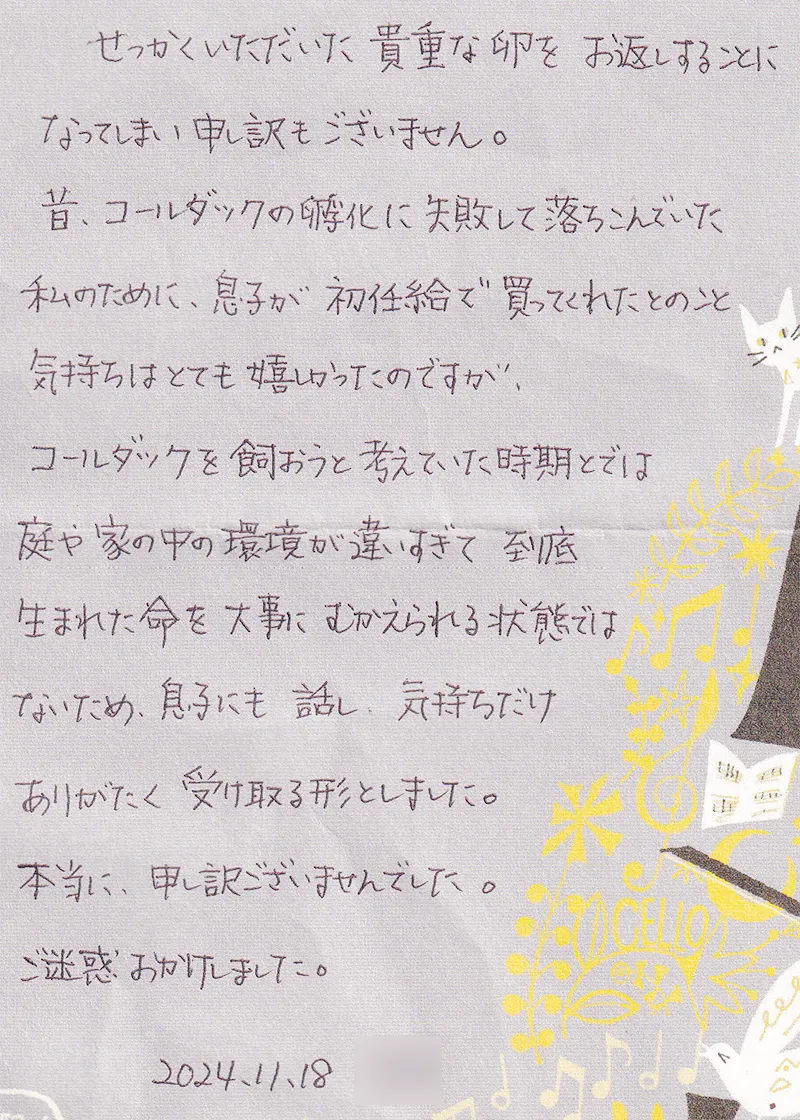 せっかくいただいた 貴重な卵を お返しすることに
なってしまい 申し訳もございません。
昔、コールダックの孵化に失敗して落ちこんでいた
私のために、息子が 初任給で買ってくれたとのこと
気持ちはとても嬉しかったのですが、
コールダックを飼おうと考えていた時期とでは
庭や家の中の環境が違いすぎて 到底
生まれた命を大事にむかえられる状態では
ないため、息子にも 話し、気持ちだけ
ありがたく 受け取る形としました。
本当に、申し訳ございませんでした。
ご迷惑おかけしました。
2024.11.18
CELLO